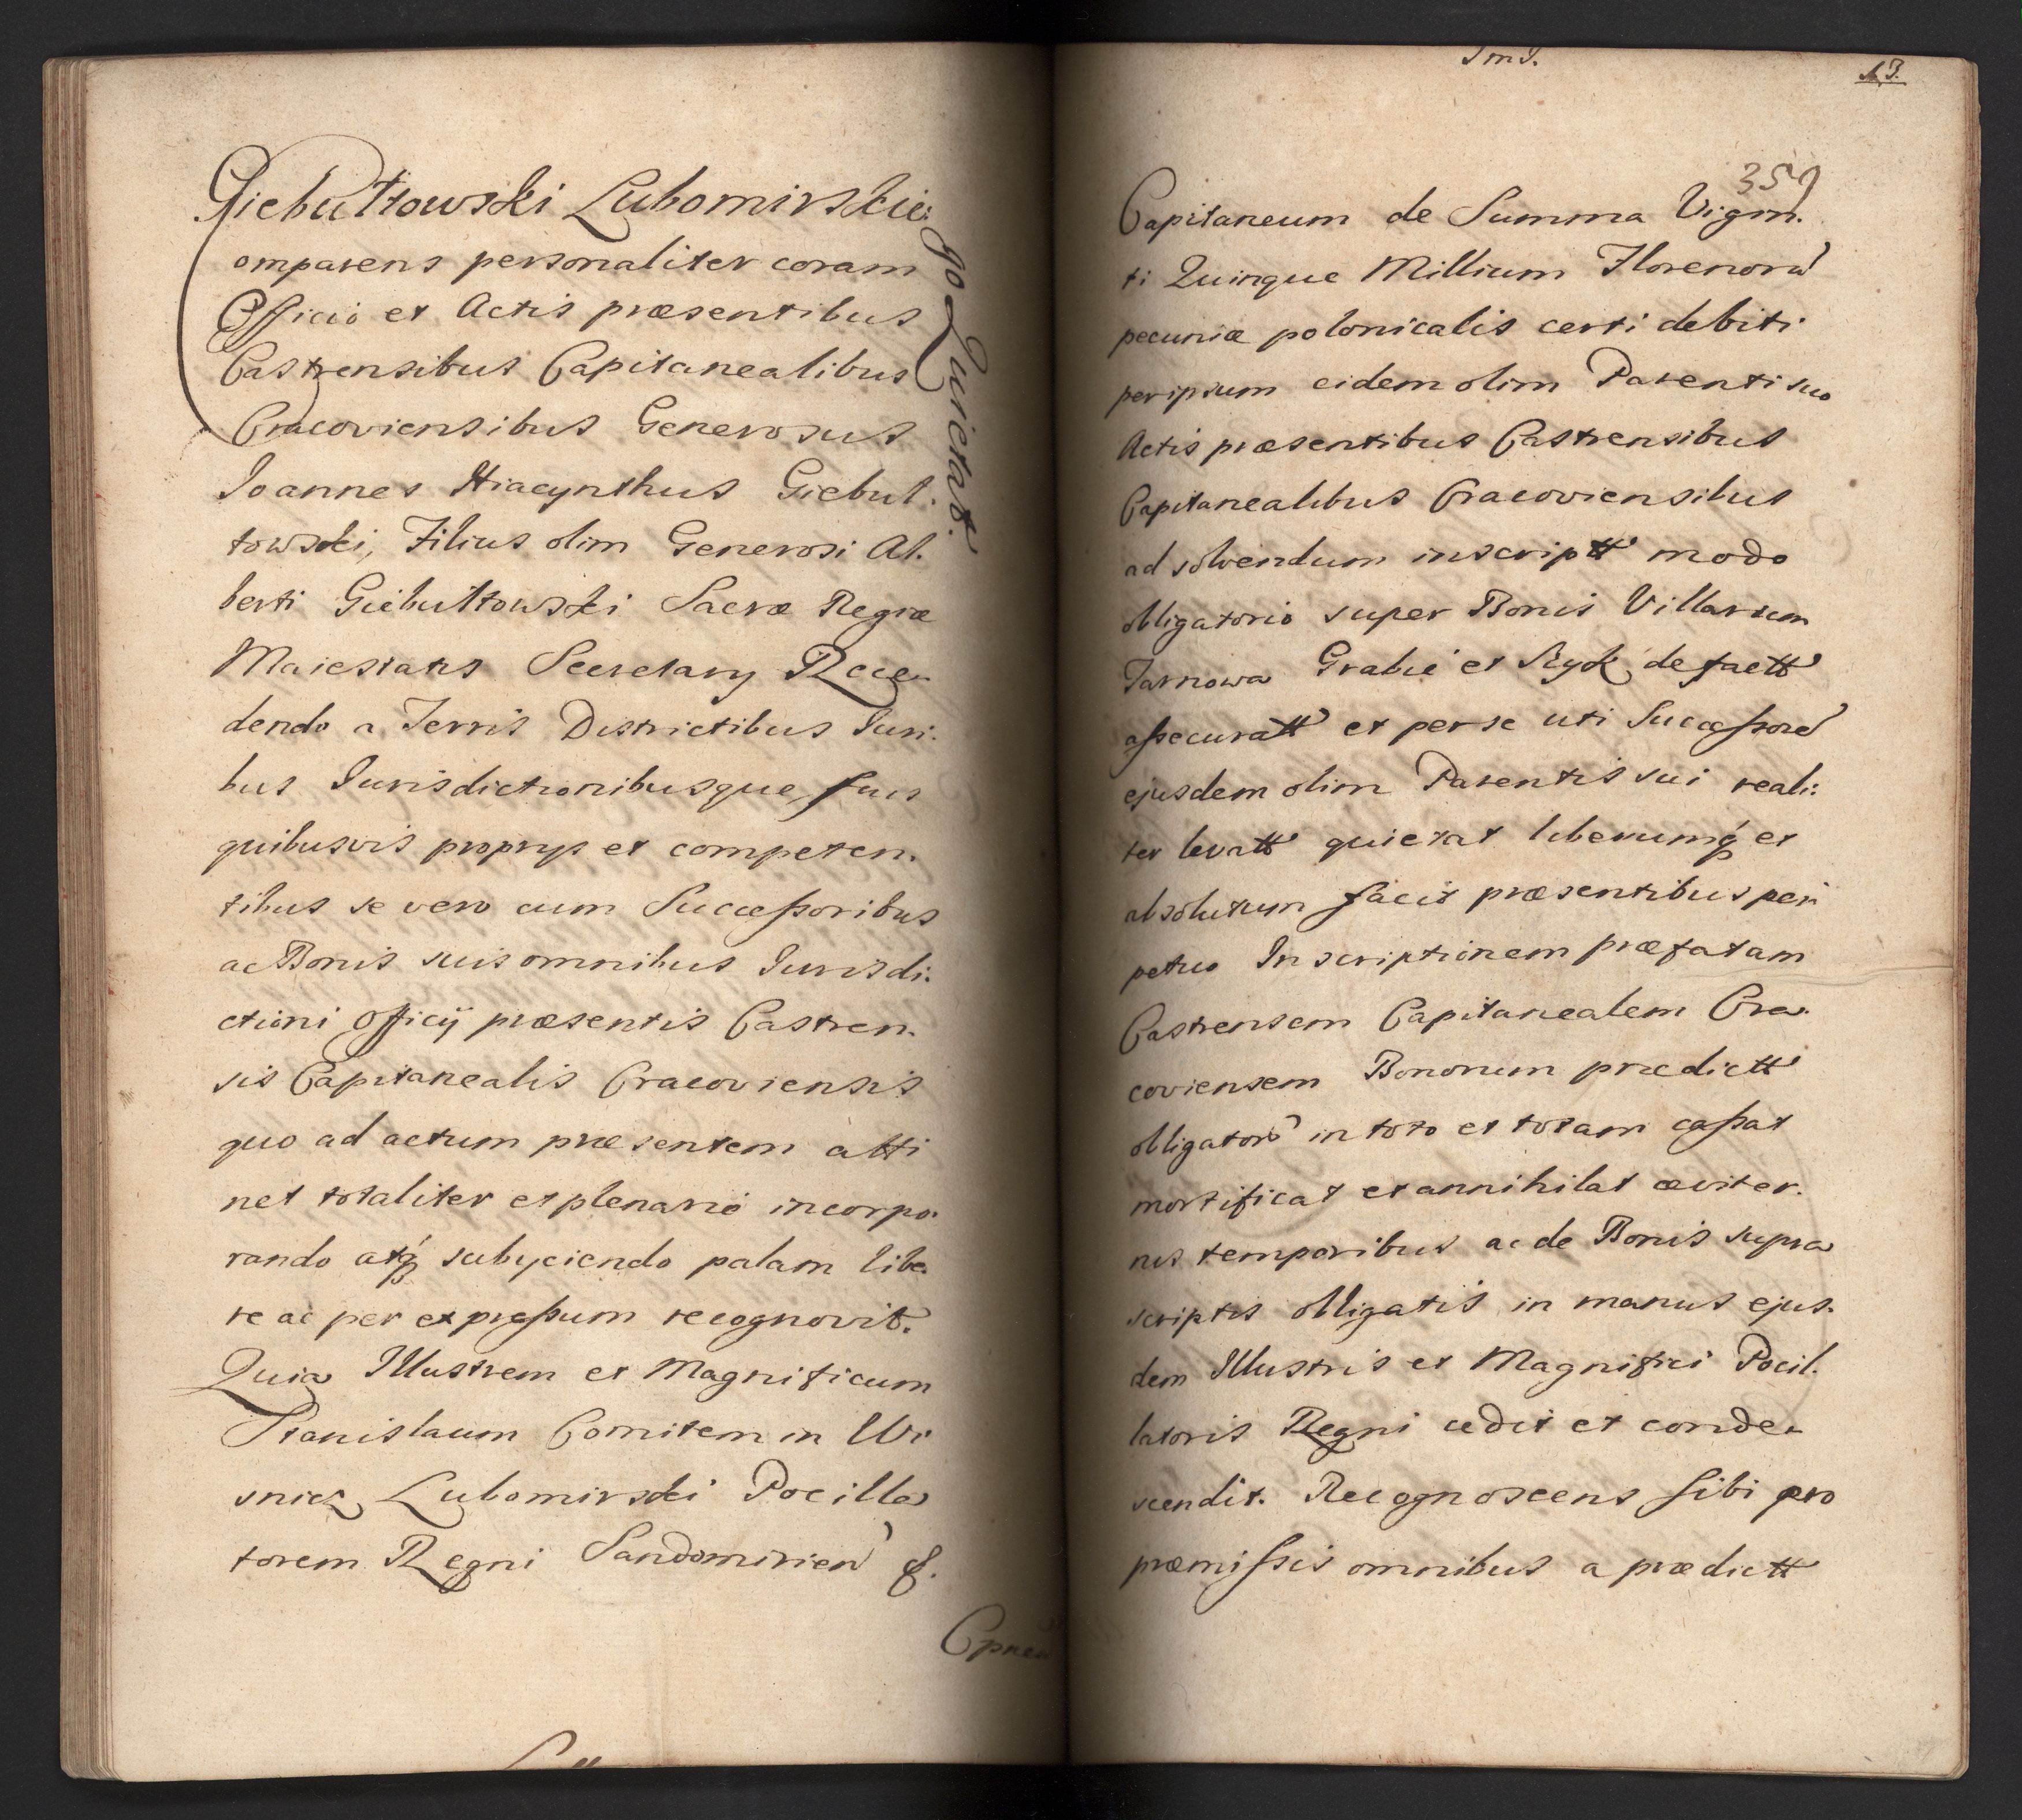 Giebułtowski Lubomirskie:
go Quietat.
omparens personaliter coram
Officio et Actis præsentibus
Castrensibus Capitanealibus
Cracoviensibus Generosus
Joannes Hiacynthus Giebul.
towski, Filius olim Generosi Al.
berti Giebułtowski Sacræ Regiæ
Maiestatis Secretary Rece.
dendo a Terris Districtibus Juri.
bus Jurisdictionibusque suis
quibusvis proprys et competen.
tibus se vero cum Successoribus
ac Bonis suis omnibus Jurisdi.
ctioni Officÿ præsentis Castren.
sis Capitanealis Cracoviensis
quo ad actum præsentem atti
net totaliter et plenarió incorpo.
rando atq́ subyciendo palam libe.
re ac per expressum recognovit.
Quia Illustrem et Magnificum
Stanislaum Comitem in Wi
snicz Lubomirski Pocilla
torem Regni Sandomirien &.
Cpneu
Smd.
13.
359
Capitaneum de Summa Vigin.
ti Quinque Millium Florenorū
pecuniæ polonicalis certi debiti
per ipsum eidem olim Parenti suo
Actis præsentibus Castrensibus
Capitanealibus Cracoviensibus
ad solvendum inscriptt modo
obligatorio super Bonis Villarum
Tarnowa Grabie et Ryk de factt
assecuratt et per se uti Successorē
ejusdem olim Parentis sui reali:
ter levatt quietat liberumq́ et
absolutum facit præsentibus per
petuo Inscriptionem præfatam
Castrensem Capitanealem Cra.
coviensem Bonorum prædictt
obligatorē in toto et totam cassat
mortificat et annihilat æviter.
nis temporibus ac de Bonis supra
scriptis obligatis in manus ejus.
dem Illustris et Magnifici Pocil.
latoris Regni cedit et conde.
scendit. Recognoscens sibi pro
præmissis omnibus a prædictt